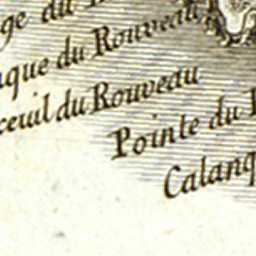 ge du
que du Rouveau
ceuil du Rouveau
Pointe du
Calanq